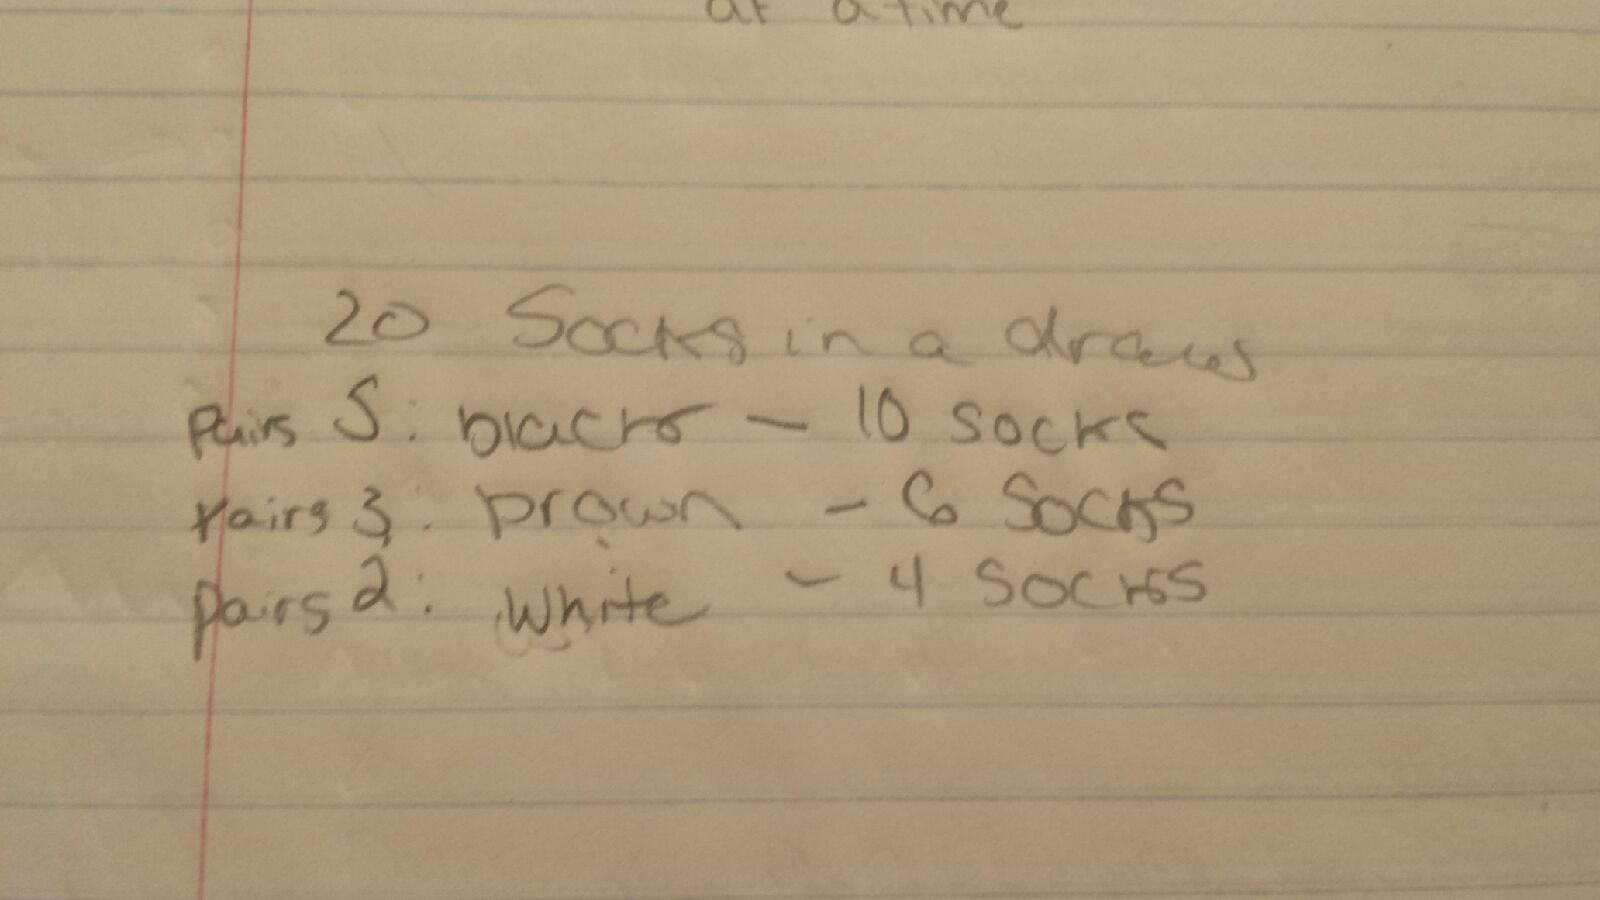 at a time
20 Socks in a draws
Pairs 5: black - 10 socks
Pairs 3: brown - 6 Socks
pairs 2: White - 4 Socks